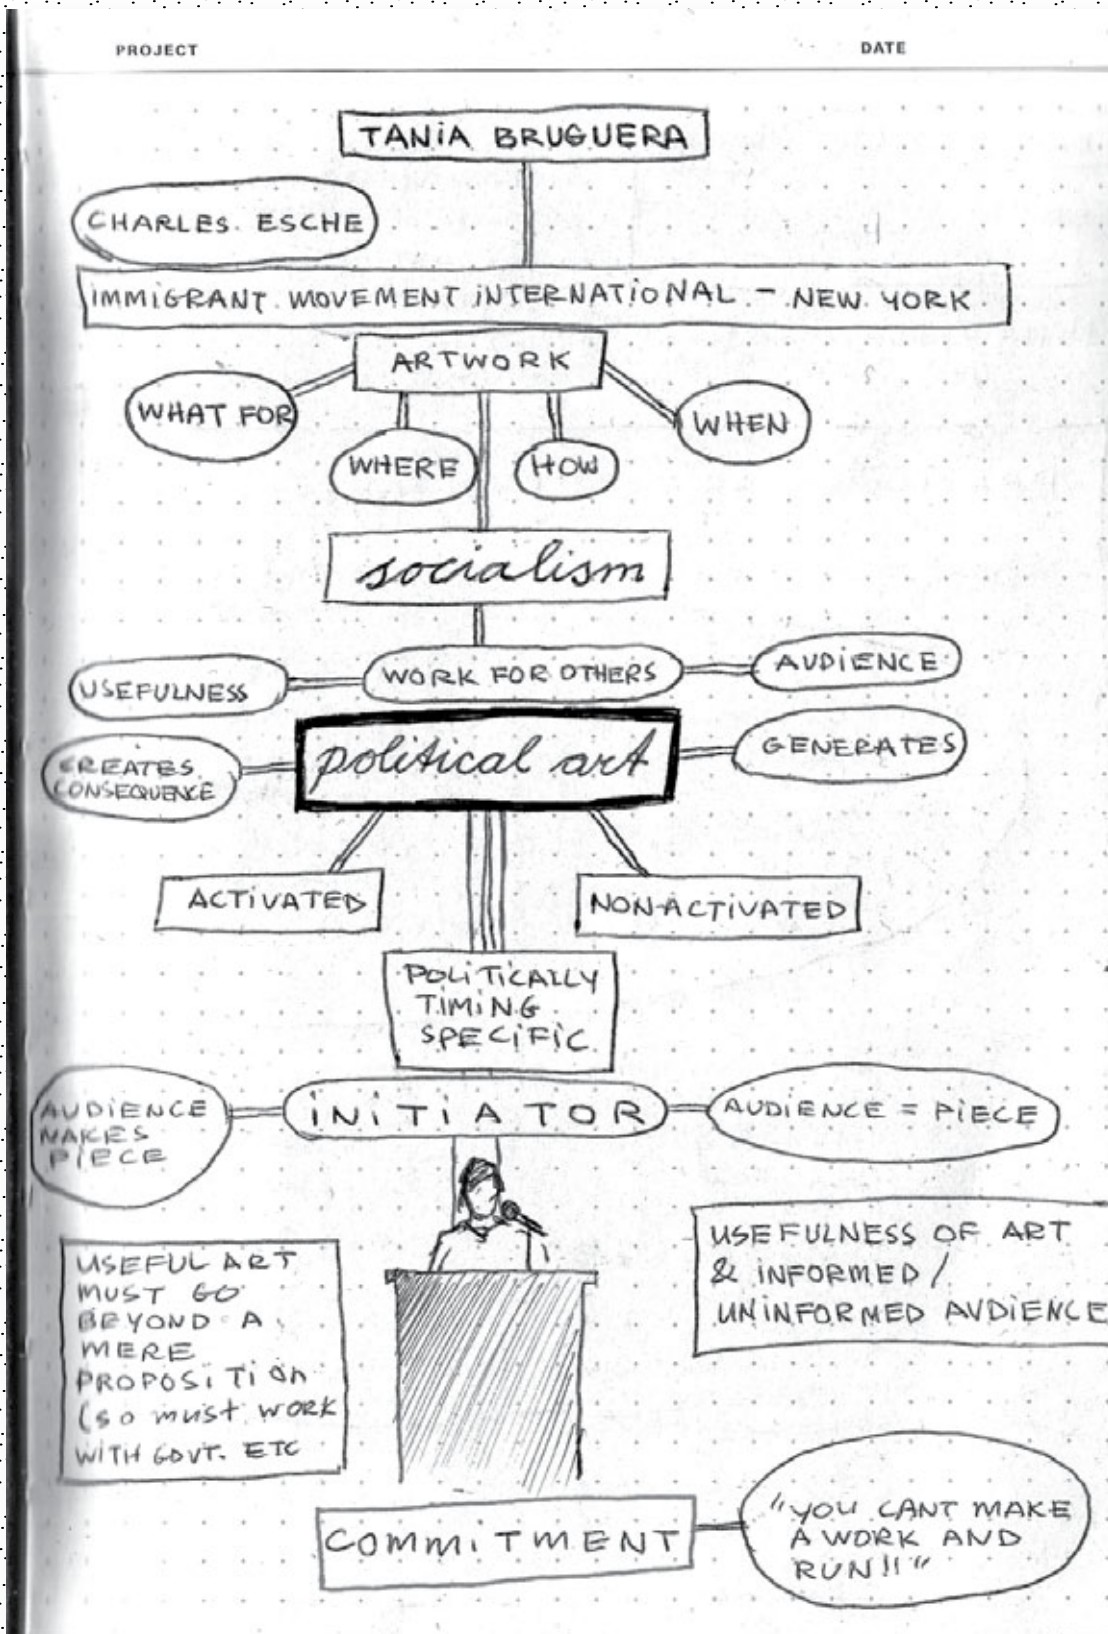 PROJECT
DATE
TANIA BRUGUERA
CHARLES. ESCHE
IMMIGRANT. MOVEMENT INTERNATIONAL - NEW YORK
ARTWORK
WHAT FOR
WHEN
WHERE
HOW
socialism
USEFULNESS
WORK FOR OTHERS
AUDIENCE
CREATES
CONSEQUENCE
political art
GENERATES
ACTIVATED
NON-ACTIVATED
POLITICALLY
TIMING
SPECIFIC
AUDIENCE
MAKES
PIECE
INITIATOR
AUDIENCE = PIECE
USEFUL ART
MUST GO
BEYOND A
MERE
PROPOSITION
(so must work
WITH GOVT. ETC
USEFULNESS OF ART
& INFORMED /
UNINFORMED AUDIENCE
COMMITMENT
"YOU CANT MAKE
A WORK AND
RUN!!"